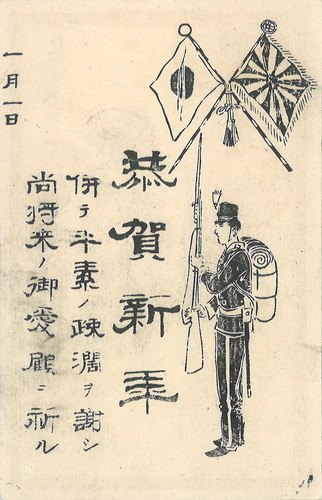 恭賀新年
併テ平素ノ疎濶ヲ謝シ
尚将来ノ御愛顧ニ祈ル
一月一日